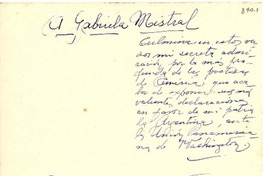 840.1
A Gabriela Mistral
Culmina en estos ver
sos mi secreta admi
ración por la más pro
funda de las poetisas
de América, que aca
ba de exponer, en sus
valientes declaraciones
en favor de mi patria
la Argentina, ante
la Unión Panamerica
na de Washington